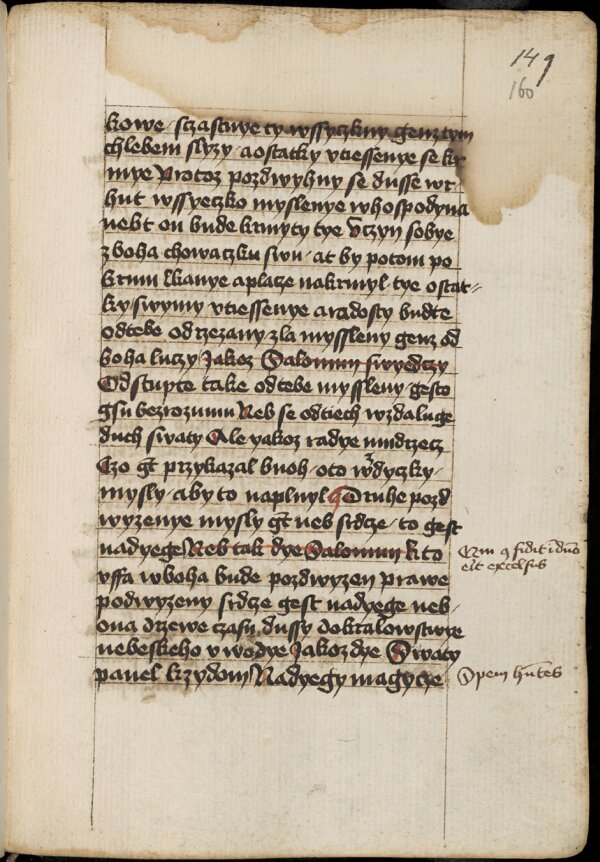 149
160
kowe / sczastnye ty wssyczkny genz tym
chlebem slyzy / a ostatky vtiessenye se kr
mye Protoz pozdwyhny se dusse wr
hni wssyeczko myslenye w hospodyna
nebt on bude krmyty tye Vczyn sobye
z boha chowaczku swu / at by potom po
krmu lkanye a placze nakrmyl tye ostat-
ky swymy vtiessenye a radosty budte
odtebe odrzezany zla myssleny genz od
boha luczy Jakoz Salomun swyedczy
Odstupte take odtebe myssleny / gesto
gsu bezrozumu Neb se odtiech wzdaluge
duch swaty Ale yakoz radye mudrzecz
Czo gt przykazal buoh / oto wzdyczky /
mysly / aby to naplnyl Druhe pozd
wyzenye mysly gt neb srdcze / to gest
nadyege Neb tak dye Salomun kto
vffa w boha bude pozdwyzen prawe
podwyzeny srdcze gest nadyege neb /
ona drzewe czasu dussy do kralowstwye
nebeskeho vwodye Jakoz dye Swaty
pauel k zydom Nadyegy magycze
Qm q fidit i dno
elt excelsus
Spem hntes